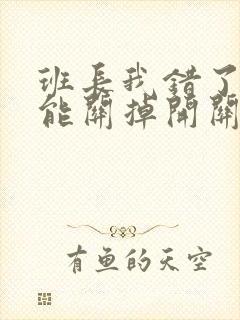 班長我錯了
能關掉開關
有魚的天空